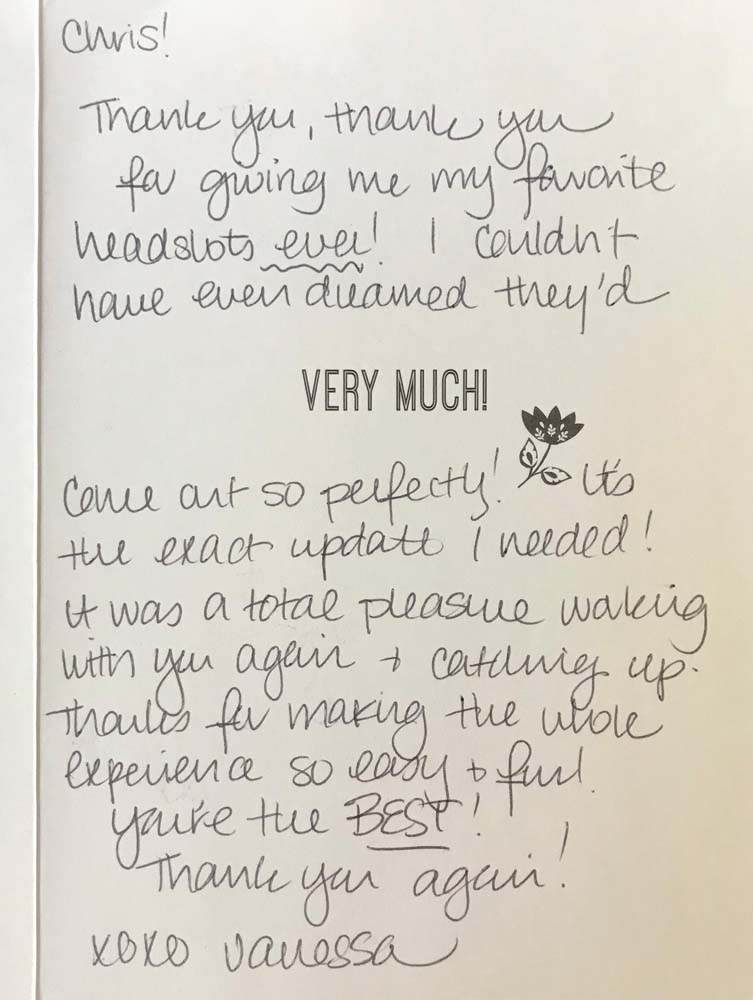 Chris!
Thank you, thank you
for giving me my favorite
headshots ever! I couldn't
have even dreamed they'd
VERY MUCH!
come out so perfectly! It's
the exact update I needed!
It was a total pleasure working
with you again + catching up.
Thanks for making the whole
experience so easy + fun.
You're the BEST!
Thank you again!
xoxo Vanessa